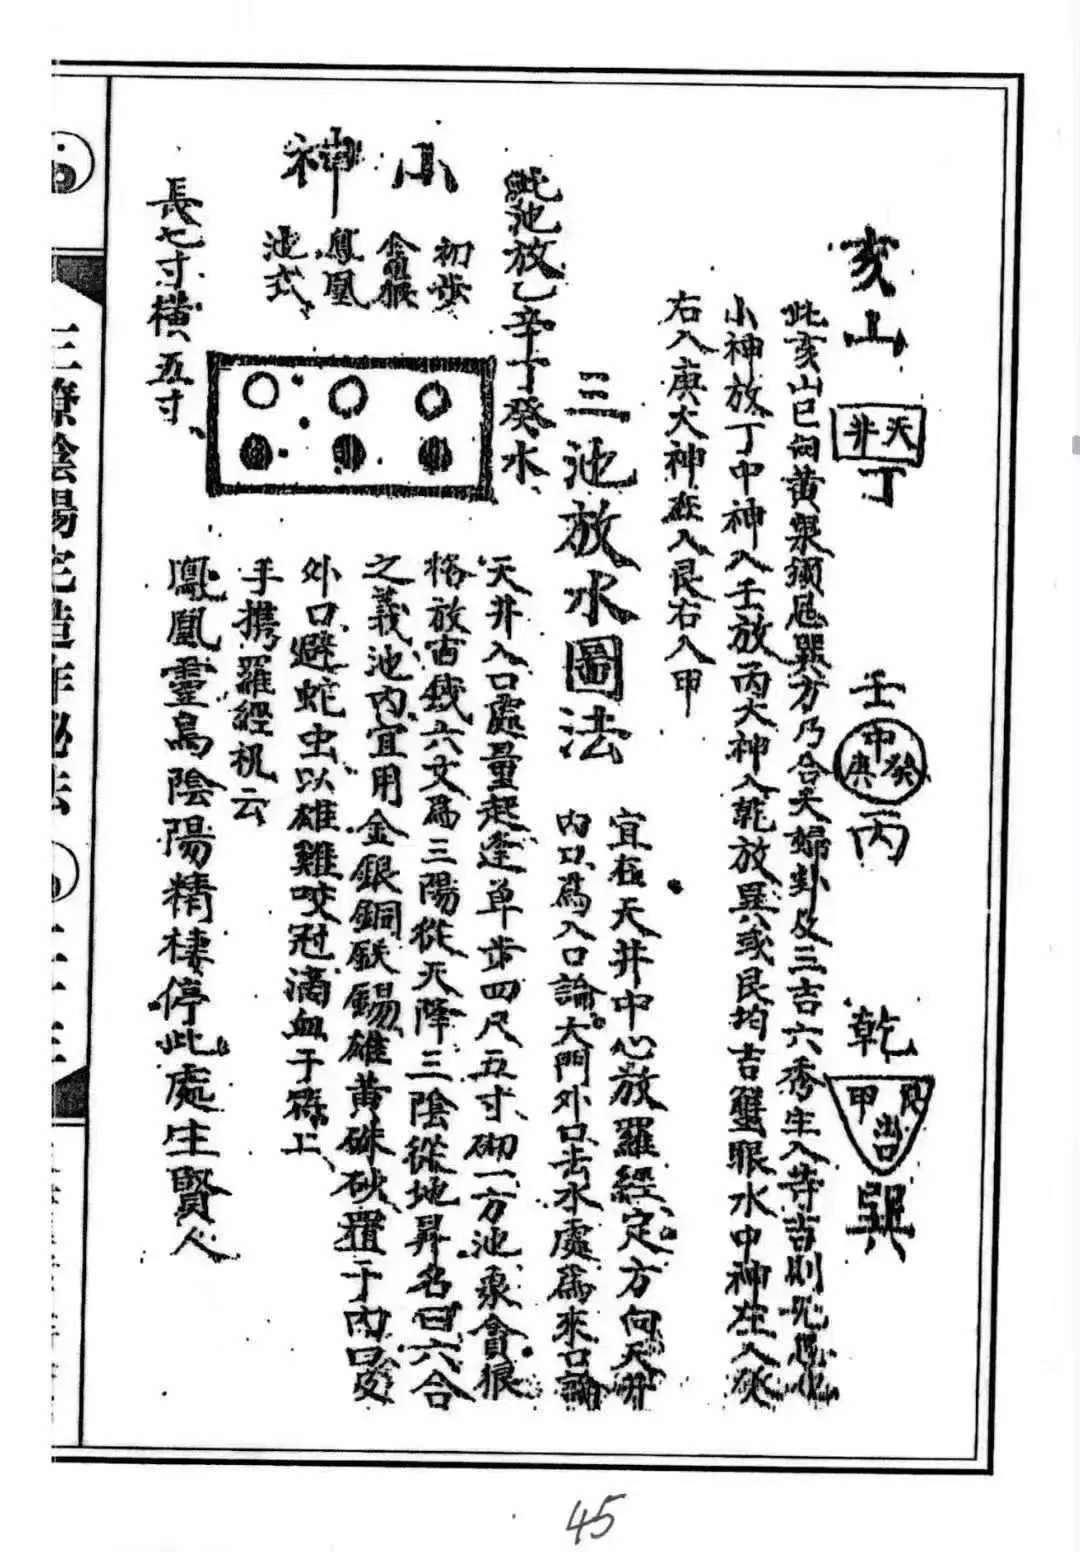 亥山
天井
丁
壬
中
癸
庚
丙
乾
甲
艮
出口
巽
此亥山巳向黃泉須忌巽方乃合夫婦卦及三吉六秀生入等吉則
小神放丁中神入壬放丙大神入乾放巽或艮均吉蟹眼水中神左入
右入庚大神左入艮右入甲
三池放水圖法
宜在天井中心放羅經定方向天井
內口為入口論大門外口去水處為來口論
此池放乙辛丁癸水
小神
初步
貪狼
鳳凰
池式
長七寸橫五寸
天井入口處量起逢单步四尺五寸砌一方池象貪狼
格放古錢六文為三陽從天降三陰從地昇名曰六合
之義池內宜用金銀銅鉄錫雄黃硃砂置于內口及
外口避蛇虫以雄雞咬冠滴血于磚上
手携羅經机云
鳳凰靈鳥陰陽精棲停此處生賢人
三寮陰陽宅造作秘法
45